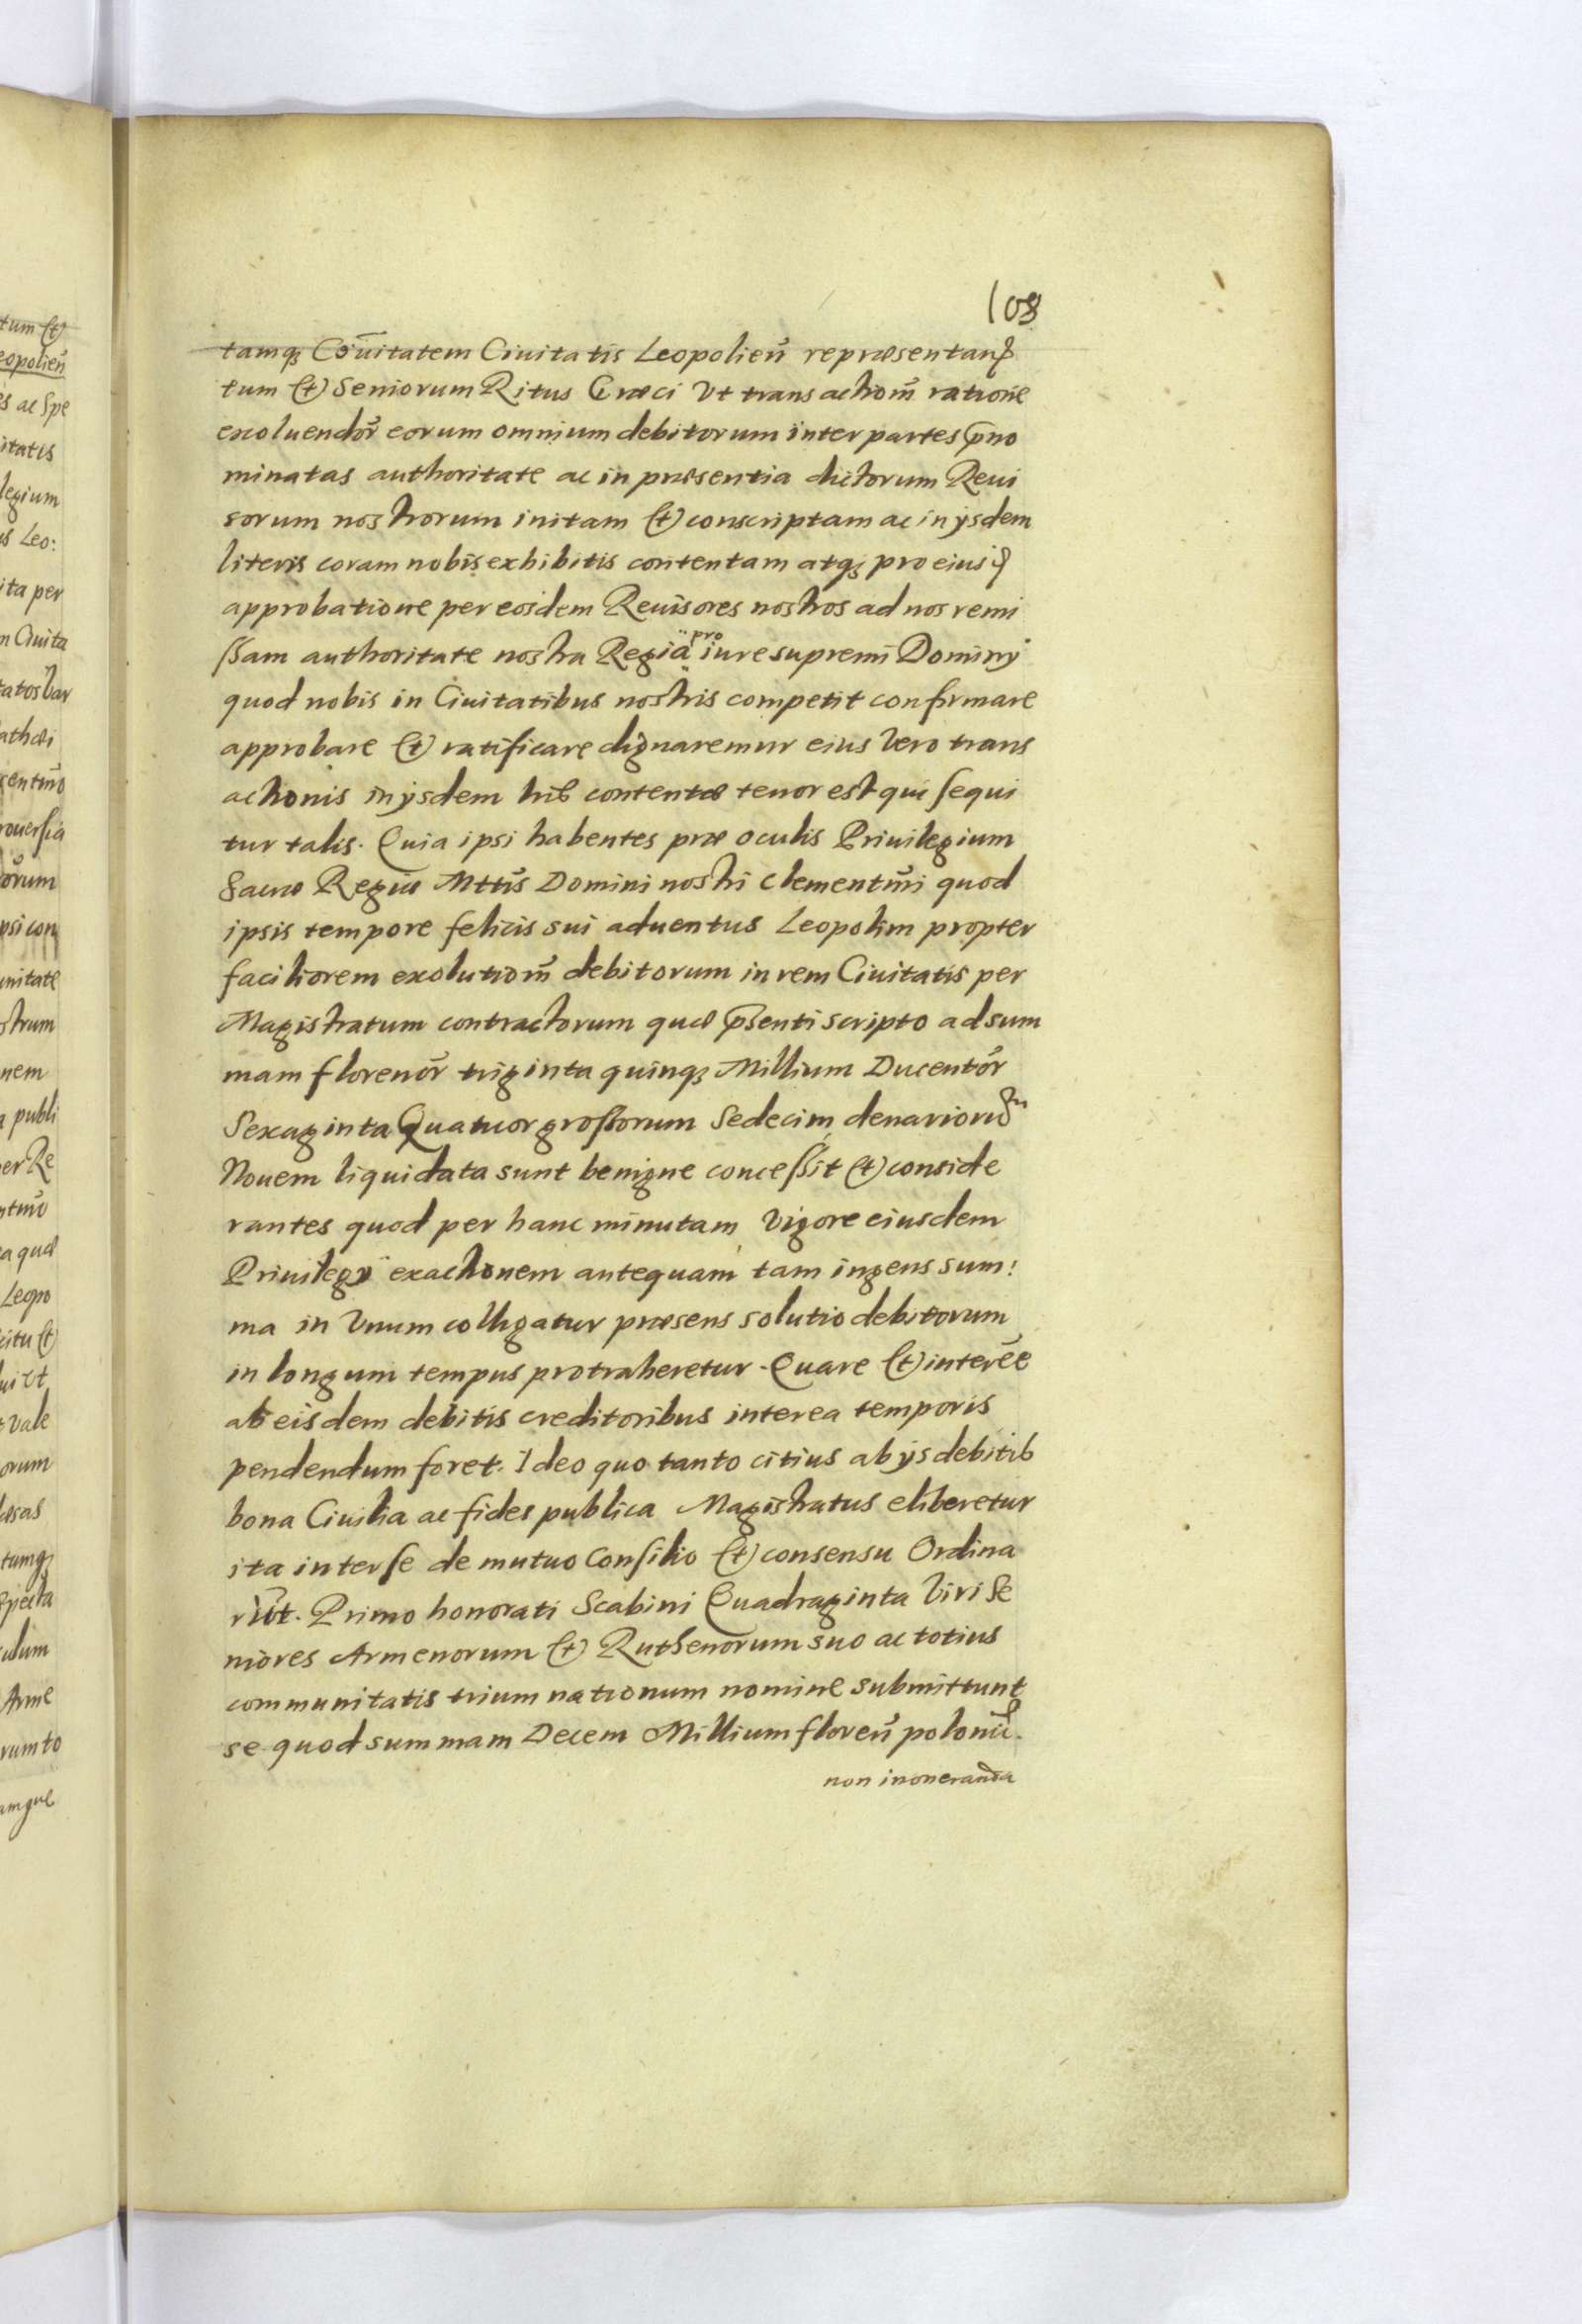 108
tamqꝫ Cōuitatem Ciuitatis Leopolieñ repræsentanꝭ
tum (et) Seniorum Ritus Græci Vt transactiom̃ ratione
exoluendor̃ eorum omnium debitorum inter partes p̃no
minatas authoritate ac in præsentia dictorum Reui
sorum nostrorum initam (et) conscriptam ac in ysdem
literis coram nobis exhibitis contentam atqꝫ pro eiusꝭ
approbatione per eosdem Reuisores nostros ad nos remi
ſſam authoritate nostra Regia pro iure supremi Dominÿ
quod nobis in Ciuitatibus nostris competit confirmare
approbare (et) ratificare dignaremur eius Vero trans
actionis in ysdem lrĩs contentæ tenor est qui ſequi
tur talis. Quia ipsi habentes præ oculis Priuilegium
Sacræ Regiæ Mttis̃ Domini nostri Clementmi̅ quod
ipsis tempore felicis sui aduentus Leopolim propter
faciliorem exolutiom̃ debitorum in rem Ciuitatis per
Magistratum contractorum quæ p̃senti scripto ad sum
mam florenor̃ triginta quinqꝫ Millium Ducentor̃
Sexaginta Quatuor groſſorum Sedecim denarioru̅m
Nouem liquidata sunt benigne conceſſit (et) conside
rantes quod per hanc minutam Vigore eiusdem
Priuilegÿ exactionem antequam tam ingens sum:
ma in Vnum colligatur præsens solutio debitorum
in longum tempus protraheretur. Quare (et) interẽe
ab eisdem debitis creditoribus interea temporis
pendendum foret. Ideo quo tanto citius ab ÿs debitib
bona Ciuilia ac fides publica Magistratus eliberetur
ita inter ſe de mutuo Conſilio (et) consensu Ordina
rũt. Primo honorati Scabini Quadraginta Viri Se
niores Armenorum (et) Ruthenorum suo ac totius
communitatis trium nationum nomine submittunt
se quod summam Decem Millium floreñ polonic̃.
non inoneranda